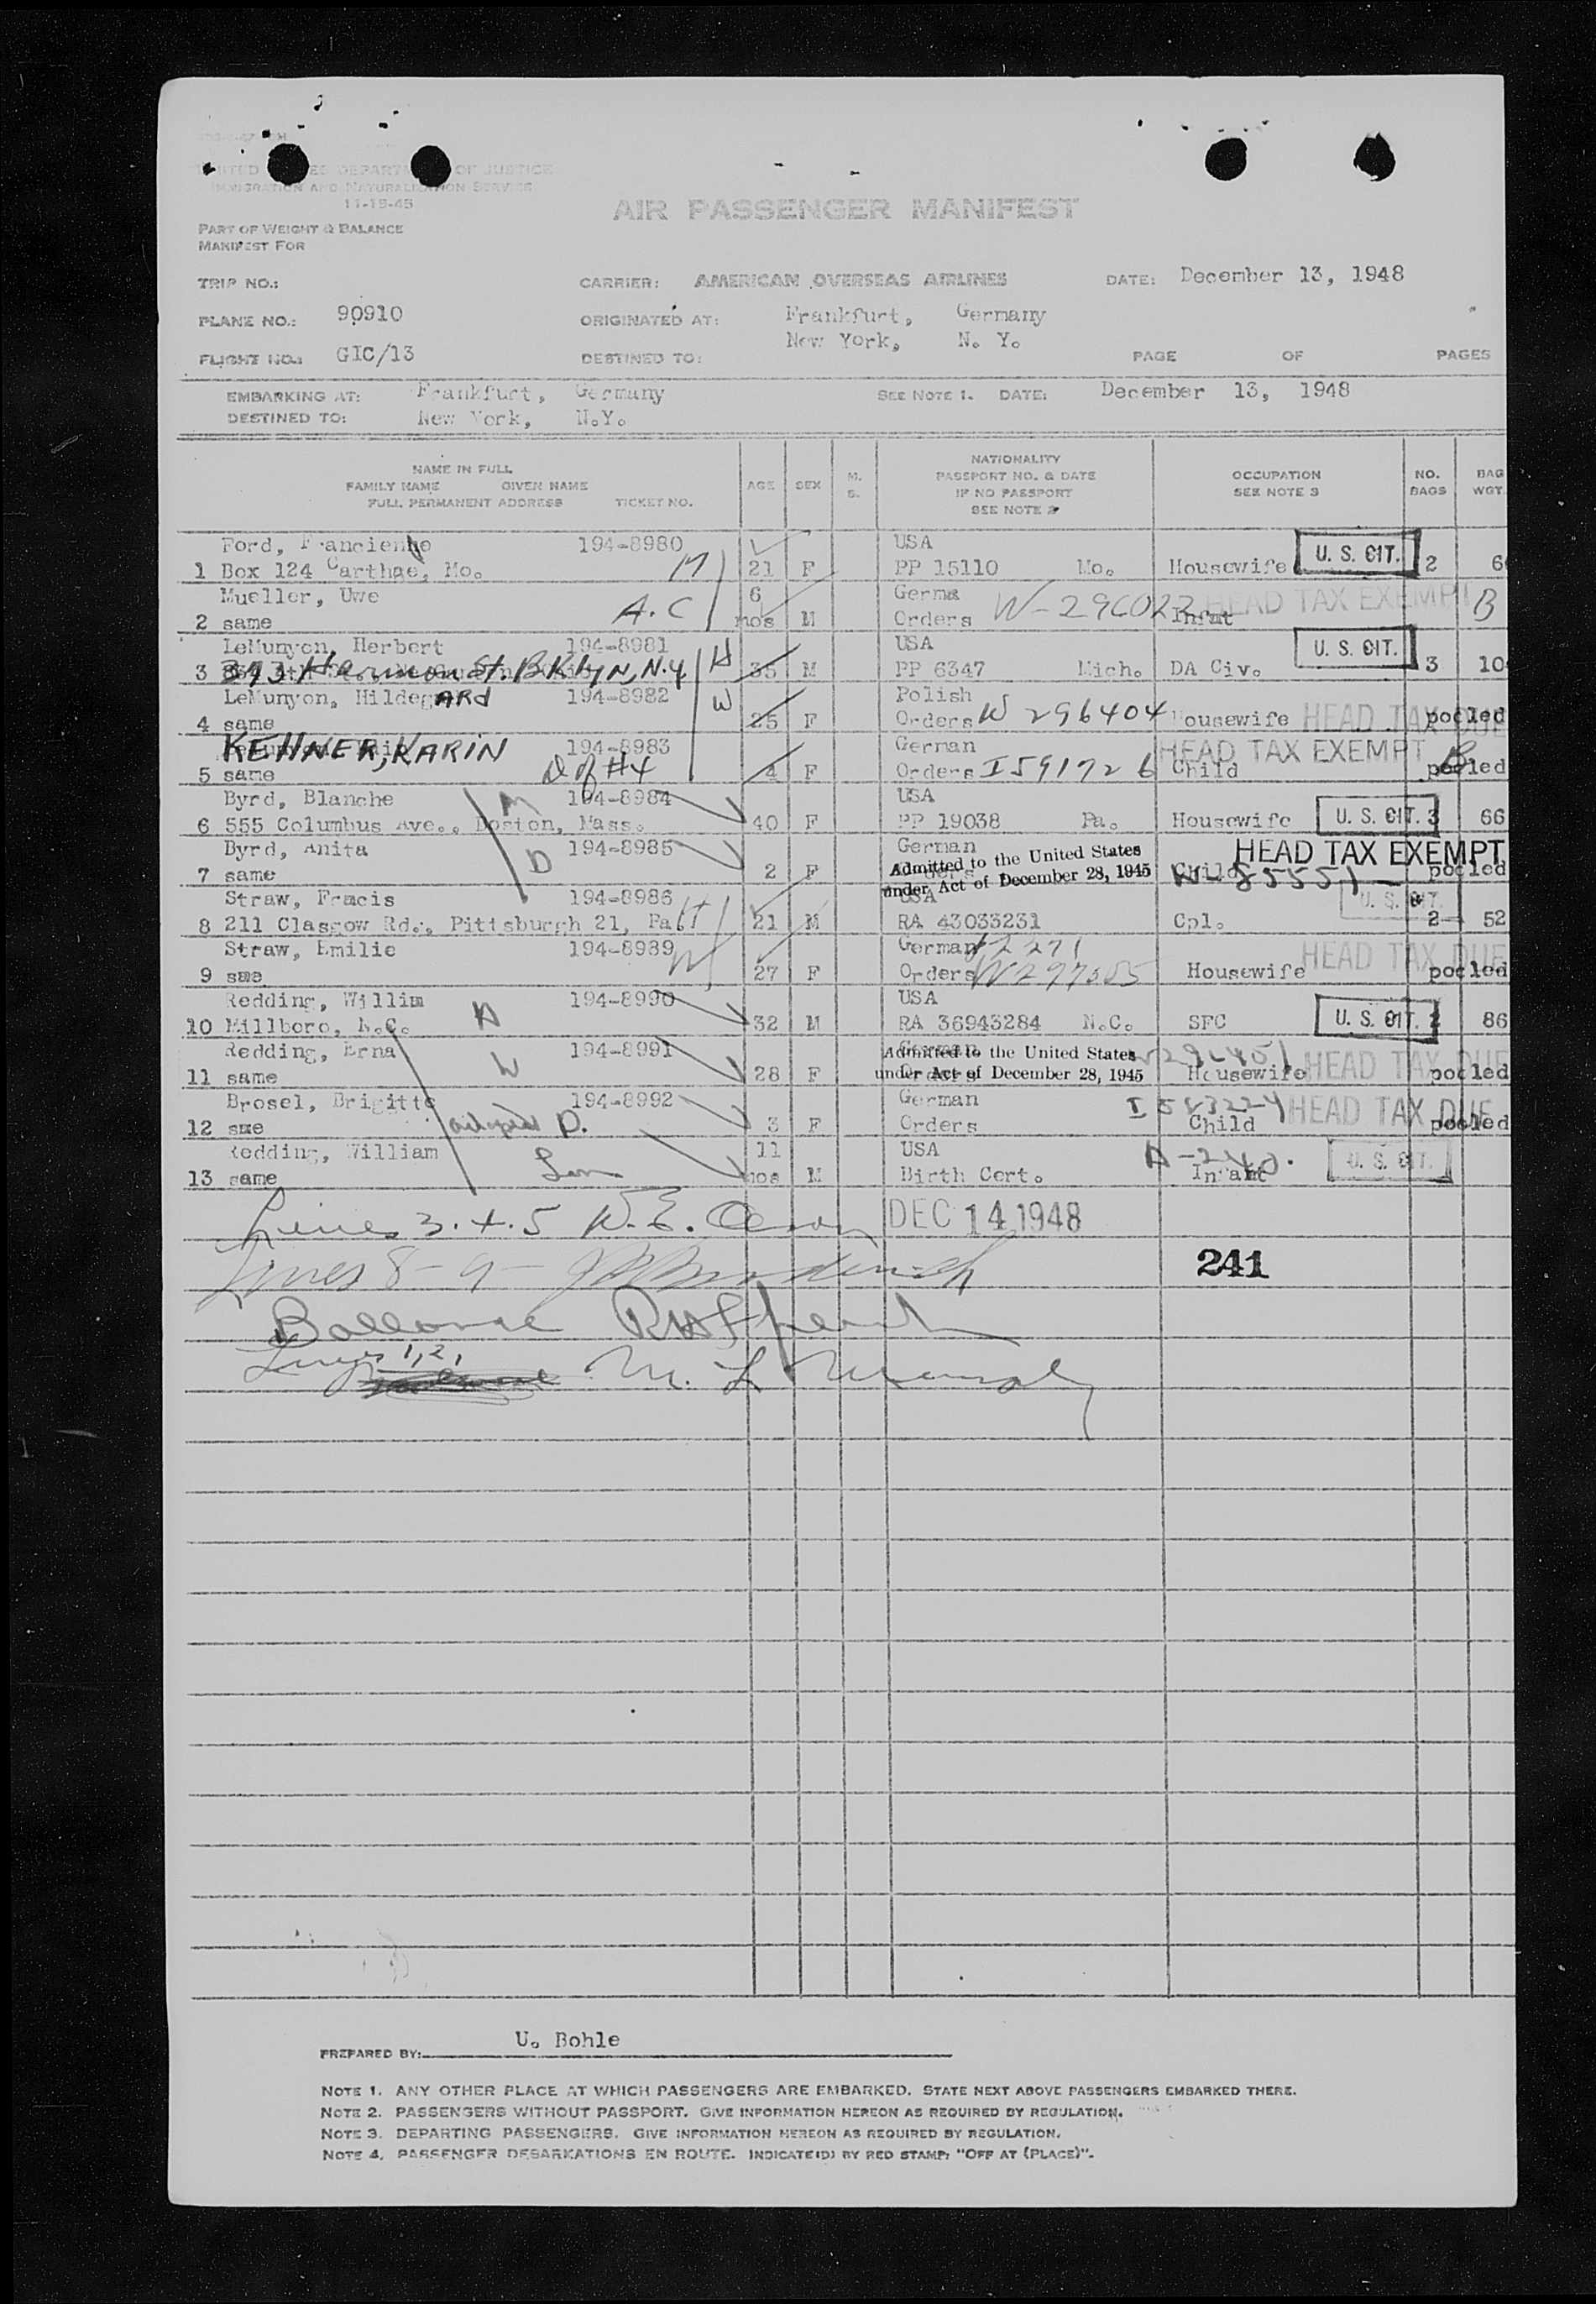 UNITED STATES DEPARTMENT OF JUSTICE
IMMIGRATION AND NATURALIZATION SERVICE
11-19-45
AIR PASSENGER MANIFEST
PART OF WEIGHT & BALANCE
MANIFEST FOR
TRIP NO.: CARRIER: AMERICAN OVERSEAS AIRLINES DATE: December 13, 1948
PLANE NO.: 90910 ORIGINATED AT: Frankfurt, Germany
FLIGHT NO.: GIC/13 DESTINED TO: New York, N. Y. PAGE OF PAGES
EMBARKING AT: Frankfurt, Germany SEE NOTE 1. DATE: December 13, 1948
DESTINED TO: New York, N.Y.
NAME IN FULL
FAMILY NAME GIVEN NAME
FULL PERMANENT ADDRESS TICKET NO. AGE SEX M. S. NATIONALITY PASSPORT NO. & DATE IF NO PASSPORT SEE NOTE 2 OCCUPATION SEE NOTE 3 NO. BAGS BAG WGT.
Ford, Francienne 194-8980 USA U. S. CIT.
1 Box 124 Carthae, Mo. M 21 F PP 15110 Mo. Housewife 2 6
Mueller, Uwe 6 Germa W-296022 HEAD TAX EXEMPT
2 same A.C mos M Orders Infnt B
LeMunyon, Herbert 194-8981 H USA U. S. CIT.
3 393 Harmon St. BKlyn, N.Y 35 M PP 6347 Mich. DA Civ. 3 10
LeMunyon, HildegARd 194-8982 W Polish
4 same 25 F Orders W 296404 Housewife HEAD TAX DUE pooled
KEHNER, KARIN 194-8983 German HEAD TAX EXEMPT B
5 same D of #4 4 F Orders I591726 Child pooled
Byrd, Blanche M 194-8984 USA
6 555 Columbus Ave., Boston, Mass. 40 F PP 19038 Pa. Housewife U. S. CIT. 3 66
Byrd, Anita D 194-8985 German HEAD TAX EXEMPT
7 same 2 F Admitted to the United States under Act of December 28, 1945 Child pooled
Straw, Frncis 194-8986 USA U. S. CIT.
8 211 Glasgow Rd., Pittsburgh 21, Pa. H 21 M RA 43033231 Cpl. 2 52
Straw, Emilie 194-8989 W German HEAD TAX DUE
9 sme 27 F Orders Housewife pooled
Redding, Willim 194-8990 USA
10 Millboro, N.C. H 32 M RA 36943284 N.C. SFC U. S. CIT. 2 86
Redding, Erna 194-8991 German
11 same W 28 F Admitted to the United States under Act of December 28, 1945 Housewife HEAD TAX DUE pooled
Brosel, Brigitte 194-8992 German I 583224 HEAD TAX DUE
12 sme adopted D. 3 F Orders Child pooled
Redding, William 11 USA
13 same Son mos M Birth Cert. Infant U. S. CIT.
Lines 3.4.5 DEC 14 1948
Lines 8-9 241
Balance
Lines 1,2,
PREPARED BY: U. Bohle
NOTE 1. ANY OTHER PLACE AT WHICH PASSENGERS ARE EMBARKED. STATE NEXT ABOVE PASSENGERS EMBARKED THERE.
NOTE 2. PASSENGERS WITHOUT PASSPORT. GIVE INFORMATION HEREON AS REQUIRED BY REGULATION.
NOTE 3. DEPARTING PASSENGERS. GIVE INFORMATION HEREON AS REQUIRED BY REGULATION.
NOTE 4. PASSENGER DEBARKATIONS EN ROUTE. INDICATE(D) BY RED STAMP: "OFF AT (PLACE)".